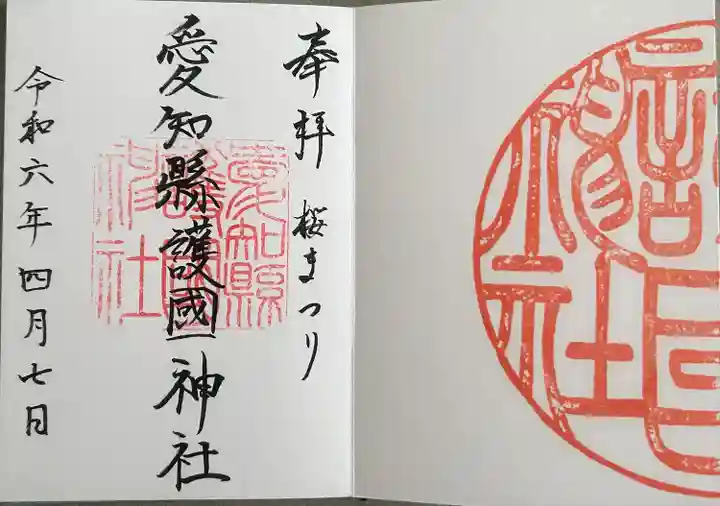 奉拝 桜まつり
愛知縣護國神社
令和六年四月七日
愛知縣
護國
神社